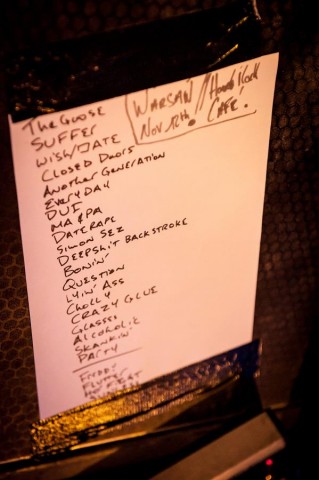 WARSAW // Hard Rock
Nov. 12th. CAFE!
The Goose
SUFFER
WISH/DATE
CLOSED DOORS
Another Generation
EVERYDAY
DUI
MA & PA
DATERAPE
SIMON SEZ
DEEPSHIT BACKSTROKE
BONIN'
QUESTION
LYIN' ASS
CHOLLY
CRAZY GLUE
GLASSES
ALCOHOLIC
SKANKIN'
PARTY
FREDDY